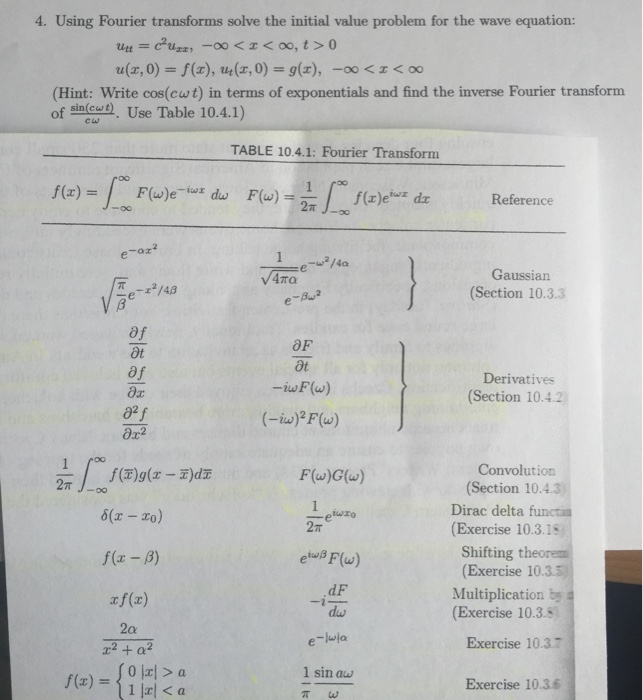 4. Using Fourier transforms solve the initial value problem for the wave equation:
u_tt = c²u_xx, −∞ < x < ∞, t > 0
u(x, 0) = f(x), u_t(x, 0) = g(x), −∞ < x < ∞
(Hint: Write cos(cωt) in terms of exponentials and find the inverse Fourier transform
of sin(cωt)/cω. Use Table 10.4.1)
TABLE 10.4.1: Fourier Transform
f(x) = ∫_{−∞}^{∞} F(ω)e^{−iωx} dω F(ω) = 1/2π ∫_{−∞}^{∞} f(x)e^{iωx} dx Reference
e^{−αx²} 1/√(4πα) e^{−ω²/4α} Gaussian
√(π/β) e^{−x²/4β} e^{−βω²} (Section 10.3.3
∂f/∂t ∂F/∂t
∂f/∂x −iωF(ω) Derivatives
∂²f/∂x² (−iω)²F(ω) (Section 10.4.2
1/2π ∫_{−∞}^{∞} f(x̄)g(x − x̄)dx̄ F(ω)G(ω) Convolution
(Section 10.4.3
δ(x − x₀) 1/2π e^{iωx₀} Dirac delta
(Exercise 10.3.1
f(x − β) e^{iωβ}F(ω) Shifting
(Exercise 10.3.5
xf(x) −i dF/dω Multiplication
(Exercise 10.3.
2α/(x² + α²) e^{−|ω|α} Exercise 10.3.7
f(x) = { 0 |x| > a 1 |x| < a 1/π sin aω/ω Exercise 10.3.6